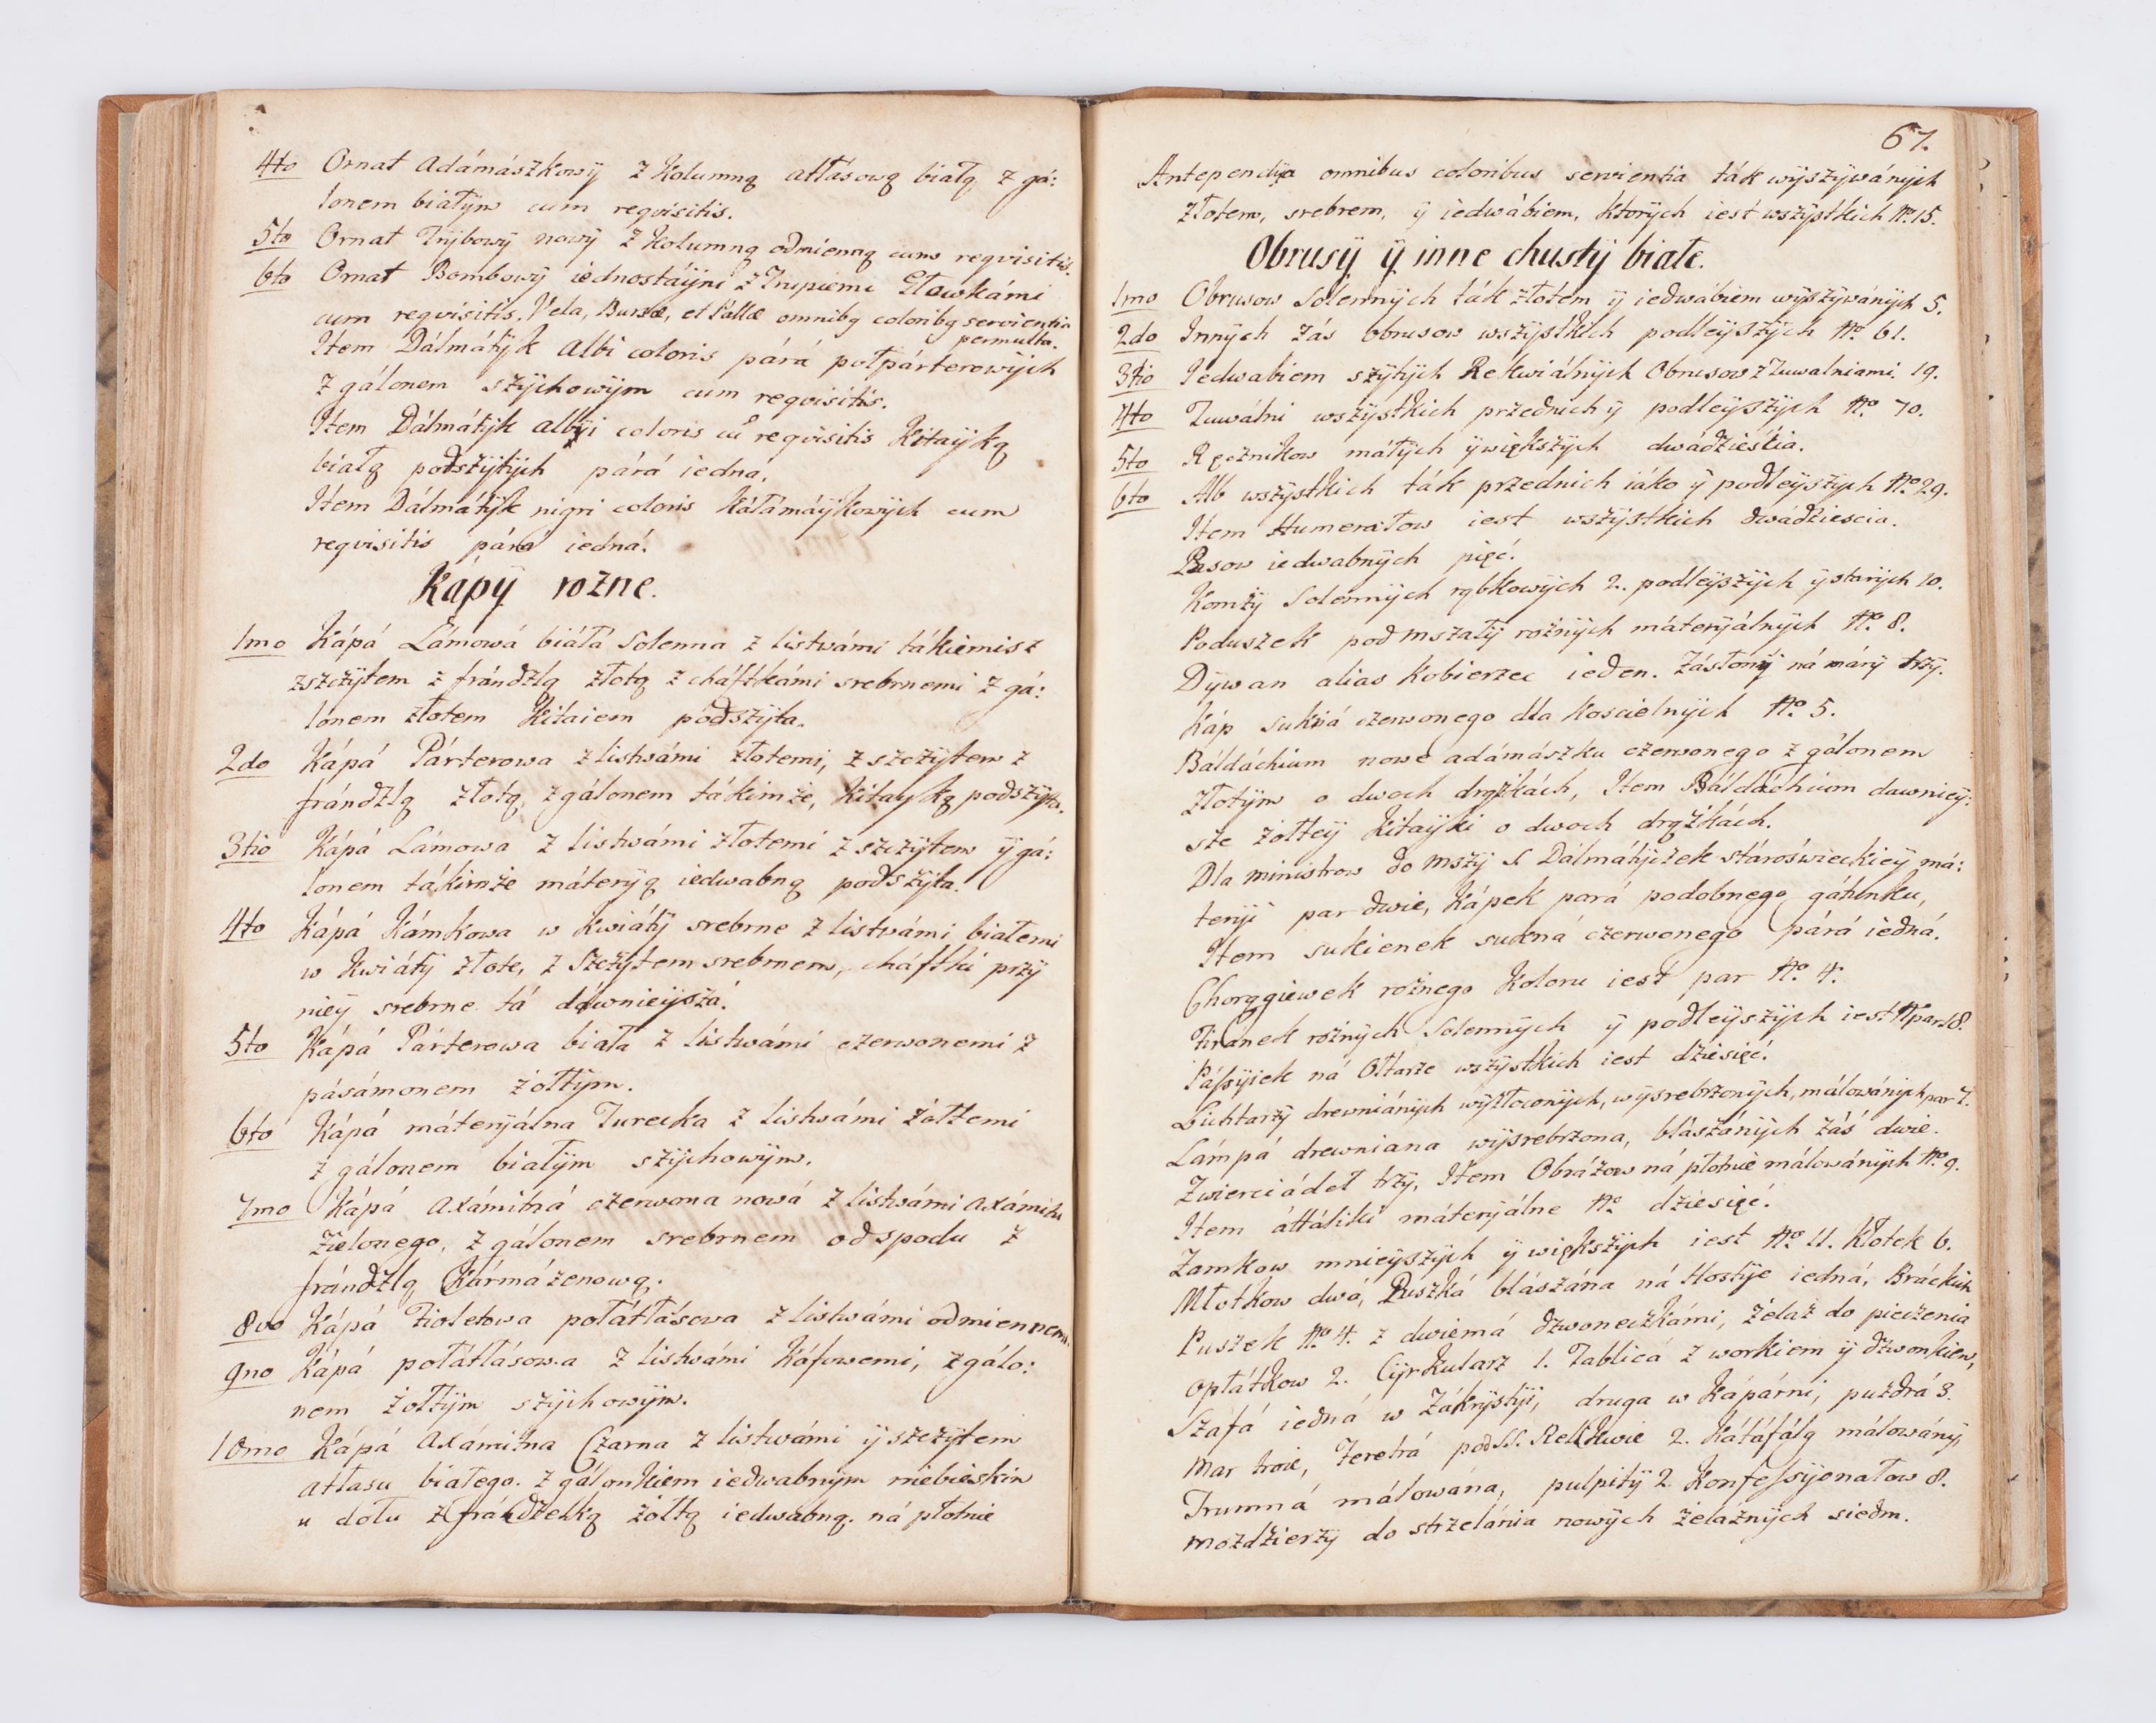 4to Ornat adámászkowÿ z Kolumną attłásową białą z gá:
lonem białÿm cum reqvisitis.
5to Ornat Trÿbowÿ nowÿ z Kolumną odmienną cum reqvisitis.
6to Ornat Bombowÿ iednostáÿni z Trupiemi Główkámi
cum reqvisitis. Vela, Bursæ, et Pallæ omnibg coloribg servientia
permulta.
Item Dálmátÿk Albi coloris párá połpárterowÿch
z gálonem szÿchowÿm cum reqvisitis.
Item Dálmátÿk albÿi coloris cū reqvisitis Kitaÿką
białą podszÿtÿch párá iedná.
Item Dálmátÿk nigri coloris Káłámáÿkowÿch cum
reqvisitis párá iedná.
Kápÿ rozne.
1mo Kápá Lámowá białá Solenna z listwámi tákiemisz
zszczÿtem z frándzlą złotą z cháftkámi srebrnemi z gá:
lonem złotem Kitaiem podszÿta.
2do Kápá Párterowa z listwámi złotemi, z szczÿtem z
frándzlą złotą, z gálonem tákimże, Kitayką podszÿta.
3tio Kápá Lámowa z listwámi złotemi z szczÿtem ÿ gá:
lonem tákimże máterÿą iedwabną podszÿta.
4to Kápá Kámkowa w kwiátÿ srebrne z listwámi białemi
w kwiátÿ złote, z Szczÿtem srebrnem, cháftki przÿ
nieÿ srebrne tá dáwnieÿszá.
5to Kápá Párterowa biała z listwámi czerwonemi z
pásámonem żołtÿm.
6to Kápá máterÿálna Turecka z listwámi żółtemi
z gálonem białÿm szÿchowÿm.
7mo Kápá axámitná czerwona nowá z listwámi axámitu
zielonego, z gálonem srebrnem odspodu z
frándzlą Kármázenową.
8vo Kápá Fioletowa połátłásowa z listwámi odmiennemi.
9no Kápá połátłásowa z listwámi Káfowemi, z gálo:
nem żołtÿm szÿchowÿm.
10mo Kápá axámitna Czarna z listwámi ÿ szczÿtem
atłasu białego. z gálonkiem iedwabnÿm niebieskim
u dołu z frándzelką żołtą iedwabną. ná płotnie
67.
Antependÿa omnibus coloribus servientia ták wÿszÿwánÿch
złotem, srebrem, ÿ iedwábiem, ktorÿch iest wszÿstkich No 15.
Obrusÿ ÿ inne chustÿ białe.
1mo Obrusow Solennÿch ták złotem ÿ iedwábiem wÿszÿwánÿch 5.
2do Innÿch zás obrusow wszÿstkich podleÿszÿch No 61.
3tio Iedwabiem szÿtÿch Rekwiálnÿch Obrusow z Tuwalniami. 19.
4to Tuwálni wszÿstkich przednich ÿ podleÿszÿch No 70.
5to Ręcznikow máłÿch ÿ większÿch dwádzieścia.
6to Alb wszÿstkich ták przednich iáko ÿ podleÿszÿch No 29.
Item Humerałow iest wszÿstkich dwádziescia.
Pasow iedwabnÿch pięć.
Komżÿ Solennÿch rąbkowÿch 2. podleÿszÿch ÿ starÿch 10.
Poduszek pod mszałÿ rożnÿch máterÿálnÿch No. 8.
Dÿwan alias kobierzec ieden. Zásłonÿ ná márÿ trzÿ.
Káp sukná czerwonego dla kościelnÿch No 5.
Báldáchium nowe adámászku czerwonego z gálonem
złotÿm o dwoch drążkách, Item Báldáchium dawnieÿ:
sze żołteÿ Kitaÿki o dwoch drążkách.
Dla ministrow do mszÿ S. Dálmátÿczek stároświeckieÿ má:
terÿi par dwie, Kápek pará podobnego gátunku,
Item sukienek sukná czerwonego párá iedná.
Chorągiewek rożnego koloru iest par No 4.
Firanek rożnÿch Solennÿch ÿ podleÿszÿch iest No par 18.
Pássÿiek ná Ołtarze wszÿstkich iest dziesięć.
Lichtarzÿ drewniánÿch wÿzłoconÿch, wÿsrebrzonÿch, málowánÿch par 7.
Lámpá drewniana wÿsrebrzona, blászánÿch zás dwie.
Zwierciádeł trzÿ, Item Obrázow ná płotnie málowánÿch No. 9.
Item áttáliki máterÿálne No dziesięć.
Zamkow mnieÿszÿch ÿ większÿch iest No 11. Kłotek 6.
Młotkow dwá, Puszká blászána ná Hostÿe iedná, Bráckich
Puszek No 4. z dwiemá dzwoneczkámi, żelaz do pieczenia
opłátkow 2. Cÿrkularz 1. Tablicá z workiem ÿ dzwonkiem,
Száfá iedná w Zákrÿstÿi, druga w Kápárni, puzdrá 3.
Mar troie, Feretrá pod SS. Relikwie 2. Kátáfálg málowánÿ,
Trumná málowána, pulpitÿ 2. Konfessÿonałow 8.
mozdzierzÿ do strzelánia nowÿch żelaznÿch siedm.